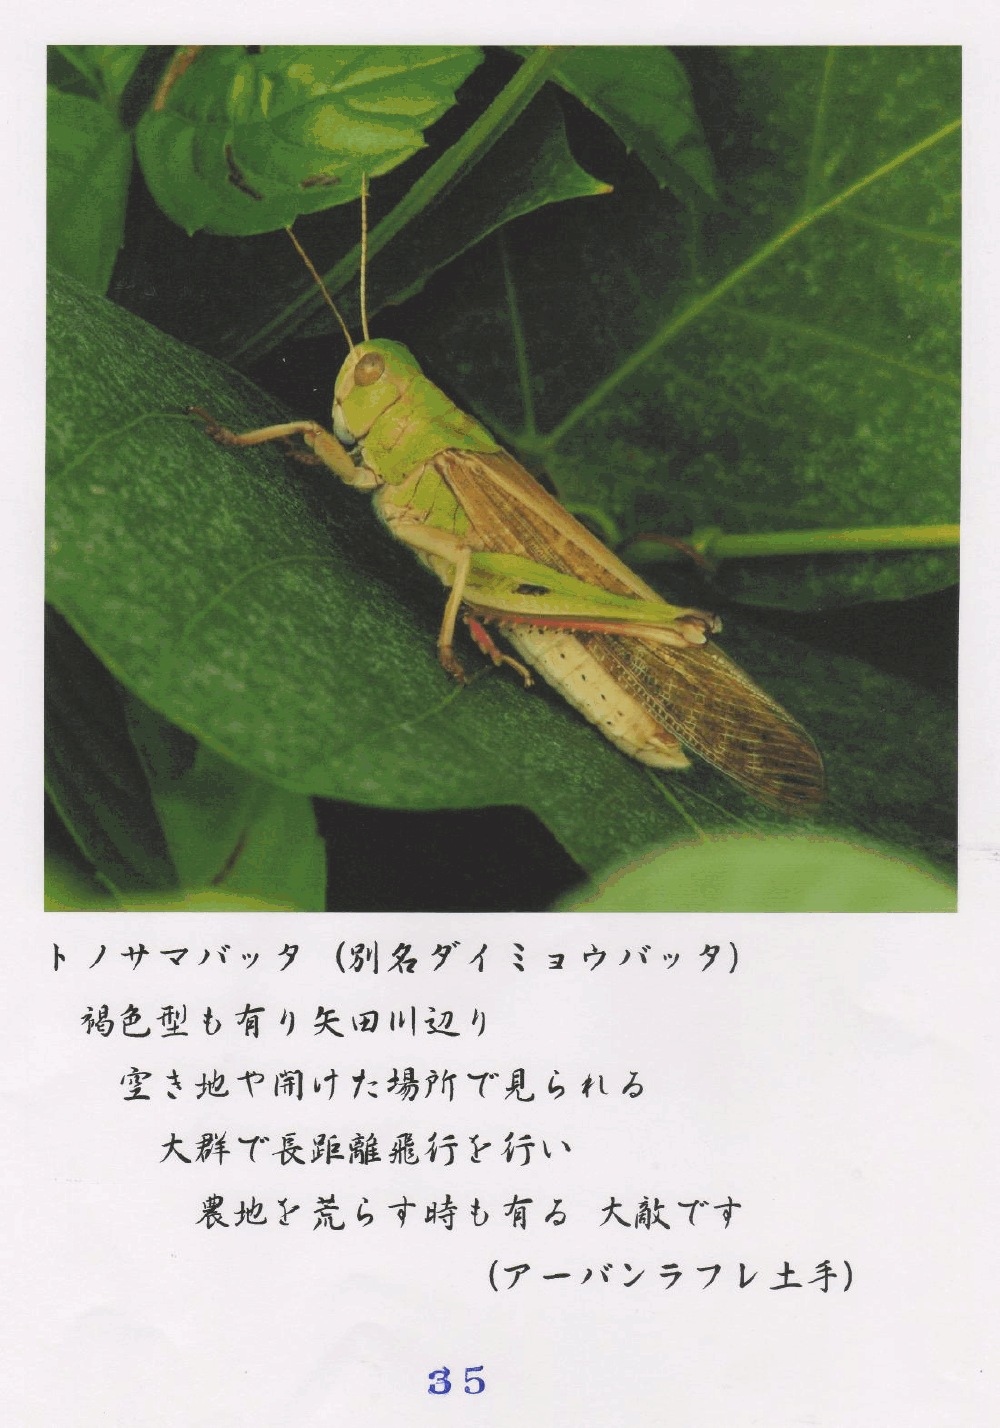 トノサマバッタ (別名ダイミョウバッタ)
褐色型も有り矢田川辺り
空き地や開けた場所で見られる
大群で長距離飛行を行い
農地を荒らす時も有る 大敵です
(アーバンラフレ土手)
35